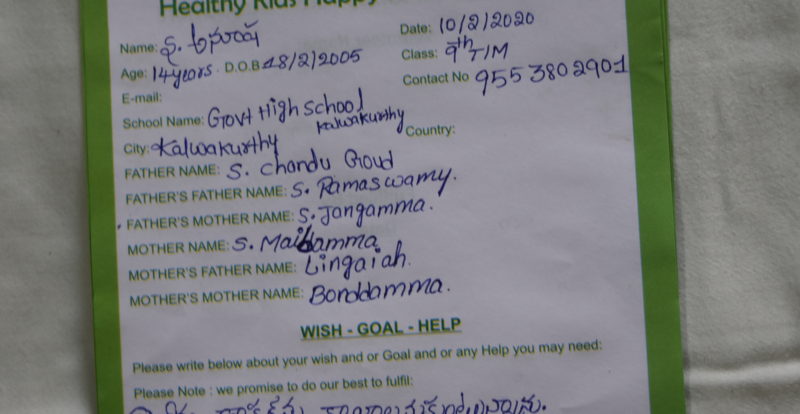 Healthy Kids Happy
Name: Date: 10/2/2020
Age: 14 years. D.O.B 18/2/2005 Class: 9th T/M
E-mail: Contact No 9553802901
School Name: Govt High School kalwakurthy
City: Kalwakurthy Country:
FATHER NAME: S. Chandu Goud
FATHER'S FATHER NAME: S. Ramaswamy.
FATHER'S MOTHER NAME: S. Jangamma.
MOTHER NAME: S.
MOTHER'S FATHER NAME: Lingaiah.
MOTHER'S MOTHER NAME: Bonddamma.
WISH - GOAL - HELP
Please write below about your wish and or Goal and or any Help you may need:
Please Note : we promise to do our best to fulfil: